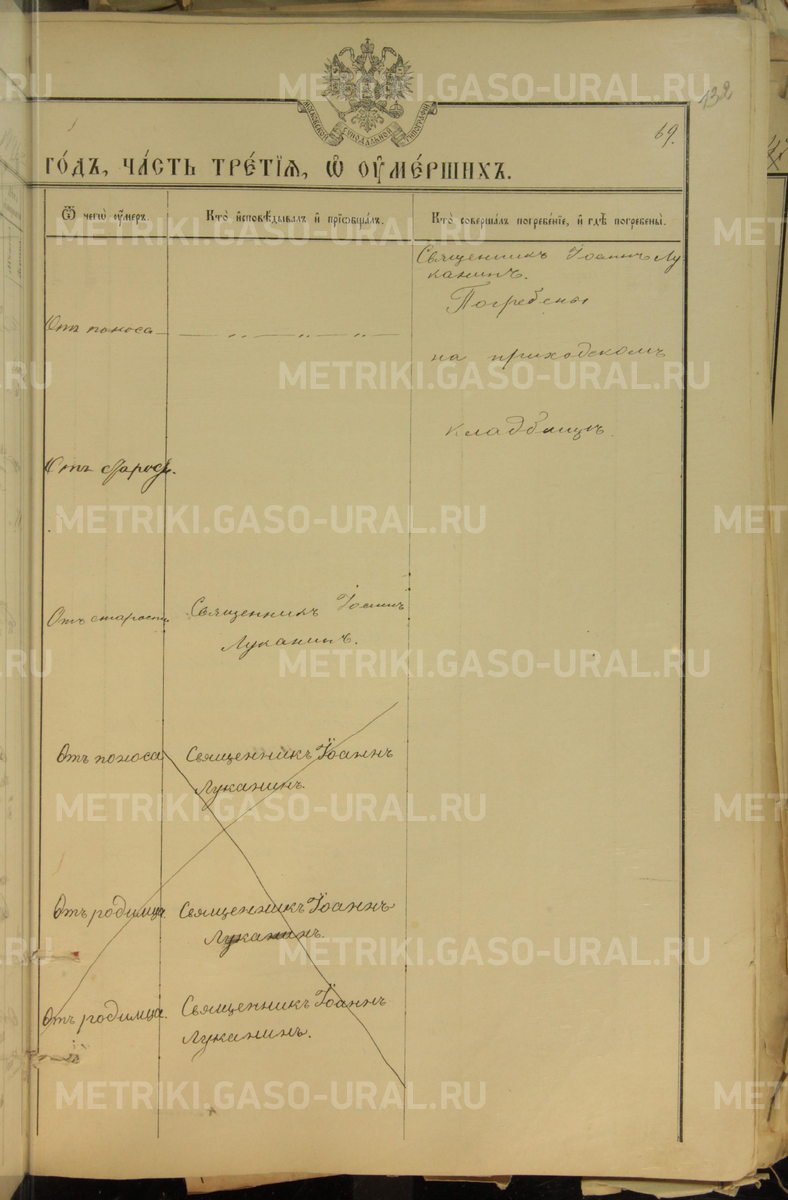 132
МОСКОВСКОЙ СИНОДАЛЬНОЙ ТИПОГРАФІИ
69.
го́дъ, ча́сть тре́тїѧ, ѡ҆ ᲂу҆ме́ршихъ.
Ѿ чегѡ̀ ᲂу҆́меръ.
Кто̀ и҆сповѣ́дывалъ и҆ прїѡбща́лъ.
Кто̀ соверша́лъ погребе́нїе, и҆ гдѣ̀ погребены̀.
Священникъ Іоаннъ Лу-
канинъ.
Погребены
Отъ поноса — „ — „ — „
на приходскомъ
кладбищѣ.
Отъ старос.
Отъ старости
Священникъ Іоаннъ
Луканинъ.
Отъ поноса
Священникъ Іоаннъ
Луканинъ.
Отъ родимца.
Священникъ Іоаннъ
Луканинъ.
Отъ родимца.
Священникъ Іоаннъ
Луканинъ.
METRIKI.GASO-URAL.RU